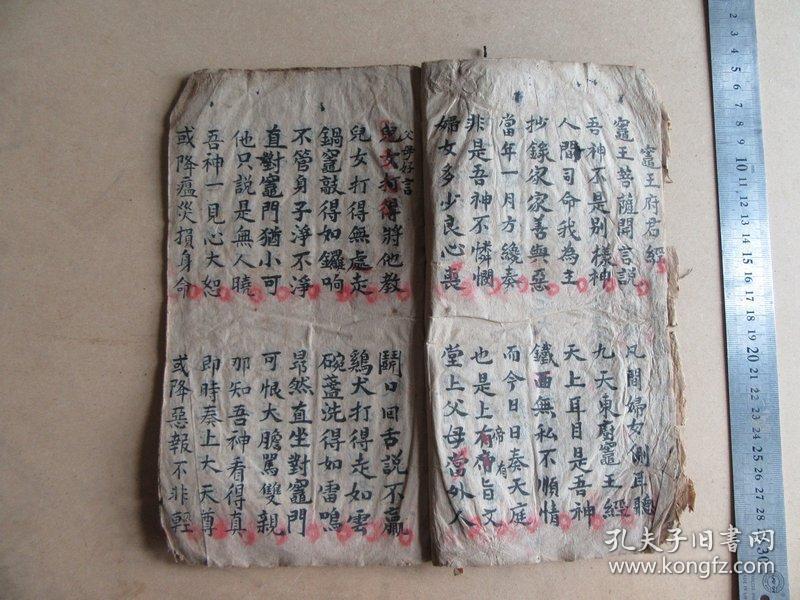 竈王府君經
竈王菩薩開言説 凡間婦女側耳聽
吾神不是別樣神 九天東厨竈王經
人間司命我為主 天上耳目是吾神
抄錄家家善與惡 鐵面無私不順情
當年一月方纔奏 而今日日奏天庭
非是吾神不憐憫 也是上帝有旨文
婦女多少良心喪 堂上父母當外人
父母好言
兒女打得將他教 鬪口回舌説不贏
兒女打得無處走 鷄犬打得走如雲
鍋竈敲得如鑼响 碗盞洗得如雷鳴
不管身子淨不淨 昂然直坐對竈門
直對竈門猶小可 可恨大膽罵雙親
他只説是無人曉 那知吾神看得真
吾神一見心大恕 即時奏上大天尊
或降瘟災損身命 或降惡報不非輕
孔夫子旧书网
www.kongfz.com